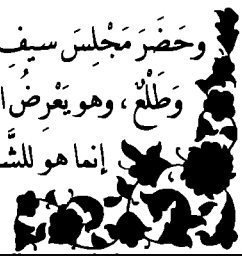 وحَضَرَ مَجْلِسَ سيفِ
وَطَلْعٌ، وهو يَعْرِضُ ا
إنما هو للشَّ